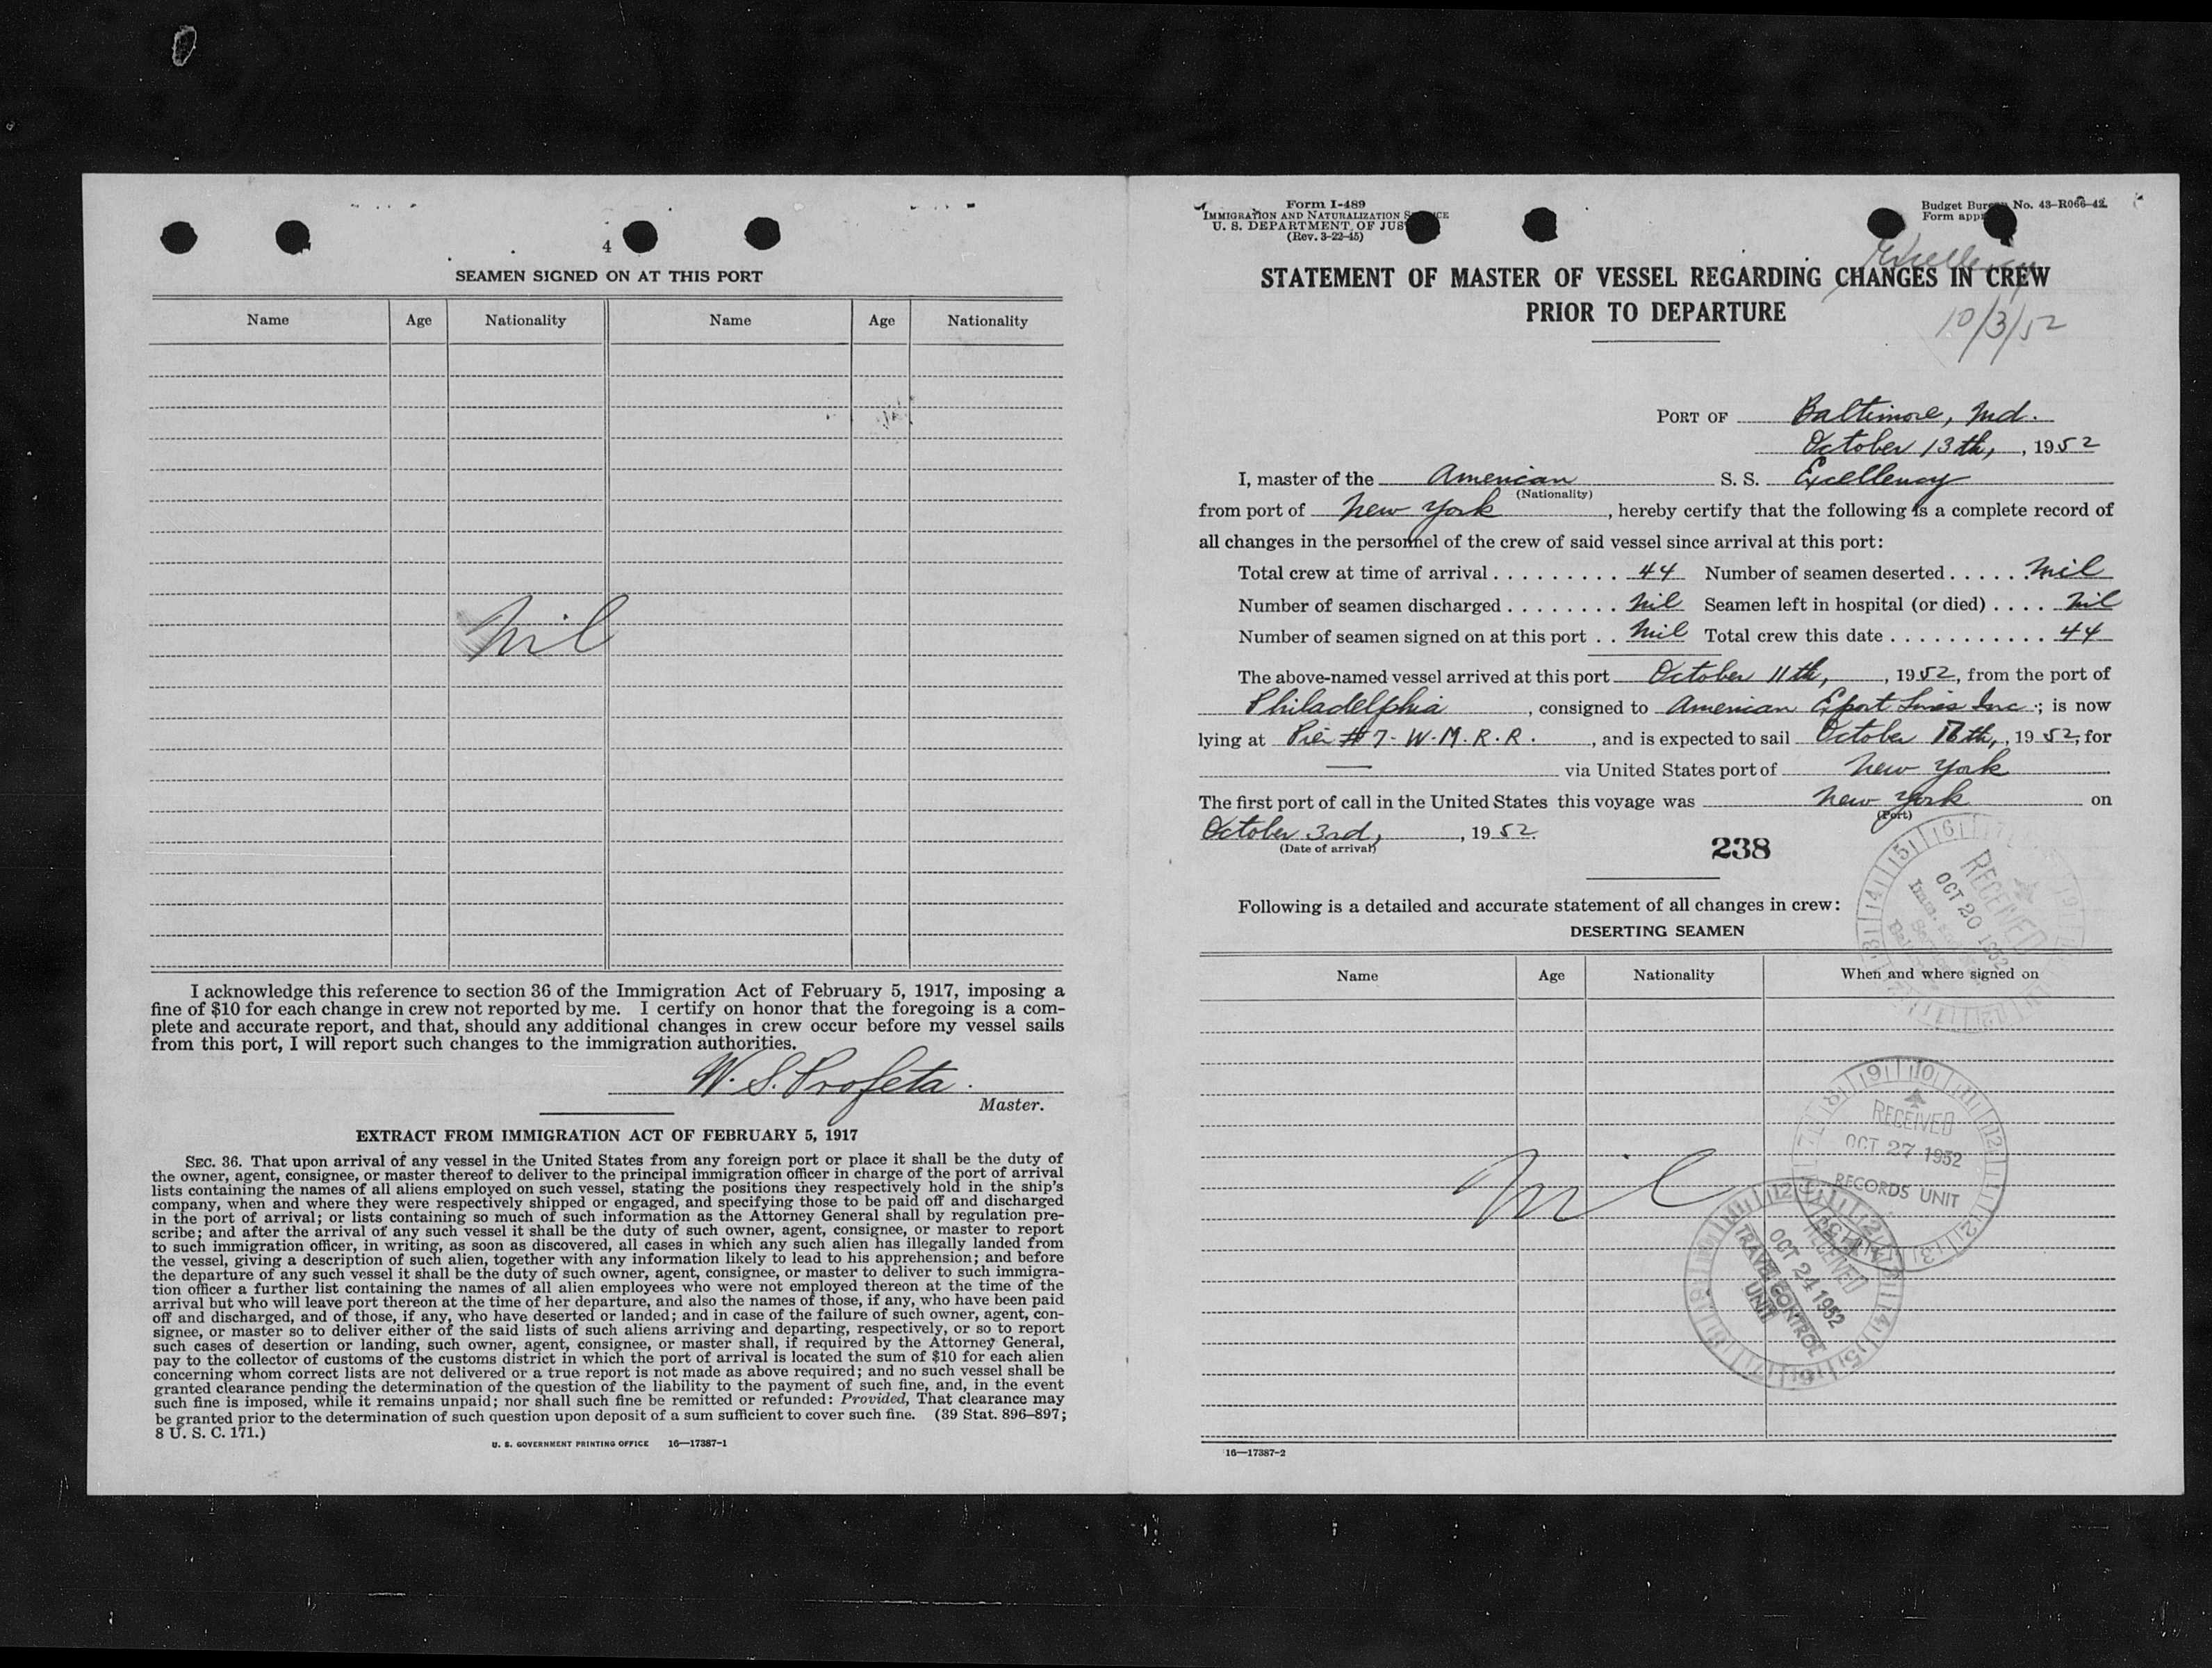 4
SEAMEN SIGNED ON AT THIS PORT
Name Age Nationality Name Age Nationality
Nil
I acknowledge this reference to section 36 of the Immigration Act of February 5, 1917, imposing a
fine of $10 for each change in crew not reported by me. I certify on honor that the foregoing is a com-
plete and accurate report, and that, should any additional changes in crew occur before my vessel sails
from this port, I will report such changes to the immigration authorities.
W. S. Profeta.
Master.
EXTRACT FROM IMMIGRATION ACT OF FEBRUARY 5, 1917
SEC. 36. That upon arrival of any vessel in the United States from any foreign port or place it shall be the duty of
the owner, agent, consignee, or master thereof to deliver to the principal immigration officer in charge of the port of arrival
lists containing the names of all aliens employed on such vessel, stating the positions they respectively hold in the ship's
company, when and where they were respectively shipped or engaged, and specifying those to be paid off and discharged
in the port of arrival; or lists containing so much of such information as the Attorney General shall by regulation pre-
scribe; and after the arrival of any such vessel it shall be the duty of such owner, agent, consignee, or master to report
to such immigration officer, in writing, as soon as discovered, all cases in which any such alien has illegally landed from
the vessel, giving a description of such alien, together with any information likely to lead to his apprehension; and before
the departure of any such vessel it shall be the duty of such owner, agent, consignee, or master to deliver to such immigra-
tion officer a further list containing the names of all alien employees who were not employed thereon at the time of the
arrival but who will leave port thereon at the time of her departure, and also the names of those, if any, who have been paid
off and discharged, and of those, if any, who have deserted or landed; and in case of the failure of such owner, agent, con-
signee, or master so to deliver either of the said lists of such aliens arriving and departing, respectively, or so to report
such cases of desertion or landing, such owner, agent, consignee, or master shall, if required by the Attorney General,
pay to the collector of customs of the customs district in which the port of arrival is located the sum of $10 for each alien
concerning whom correct lists are not delivered or a true report is not made as above required; and no such vessel shall be
granted clearance pending the determination of the question of the liability to the payment of such fine, and, in the event
such fine is imposed, while it remains unpaid; nor shall such fine be remitted or refunded: Provided, That clearance may
be granted prior to the determination of such question upon deposit of a sum sufficient to cover such fine. (39 Stat. 896–897;
8 U. S. C. 171.)
U. S. GOVERNMENT PRINTING OFFICE 16—17387-1
Form I-489
IMMIGRATION AND NATURALIZATION
U. S. DEPARTMENT OF JUS
(Rev. 3-22-45)
Budget Bureau No. 43-R066-42.
Form app
Excellency
10/3/52
STATEMENT OF MASTER OF VESSEL REGARDING CHANGES IN CREW
PRIOR TO DEPARTURE
PORT OF Baltimore, Md.
October 13th, , 1952
I, master of the American S. S. Excellency
(Nationality)
from port of New York , hereby certify that the following is a complete record of
all changes in the personnel of the crew of said vessel since arrival at this port:
Total crew at time of arrival . . . . . . . . . 44 Number of seamen deserted . . . . . . Nil
Number of seamen discharged . . . . . . . . Nil Seamen left in hospital (or died) . . . . Nil
Number of seamen signed on at this port . . Nil Total crew this date . . . . . . . . . . . 44
The above-named vessel arrived at this port October 11th, , 1952, from the port of
Philadelphia , consigned to American Export Lines Inc.; is now
lying at Pier #7- W.M.R.R. , and is expected to sail October th, , 1952, for
— via United States port of New York
The first port of call in the United States this voyage was New York on
(Port)
October 3rd, , 1952.
(Date of arrival)
238
Following is a detailed and accurate statement of all changes in crew:
DESERTING SEAMEN
RECEIVED
OCT 20 1952
Name Age Nationality When and where signed on
Nil
RECEIVED
OCT 27 1952
RECORDS UNIT
RECEIVED
OCT 24 1952
TRAVEL CONTROL
UNIT
16—17387-2